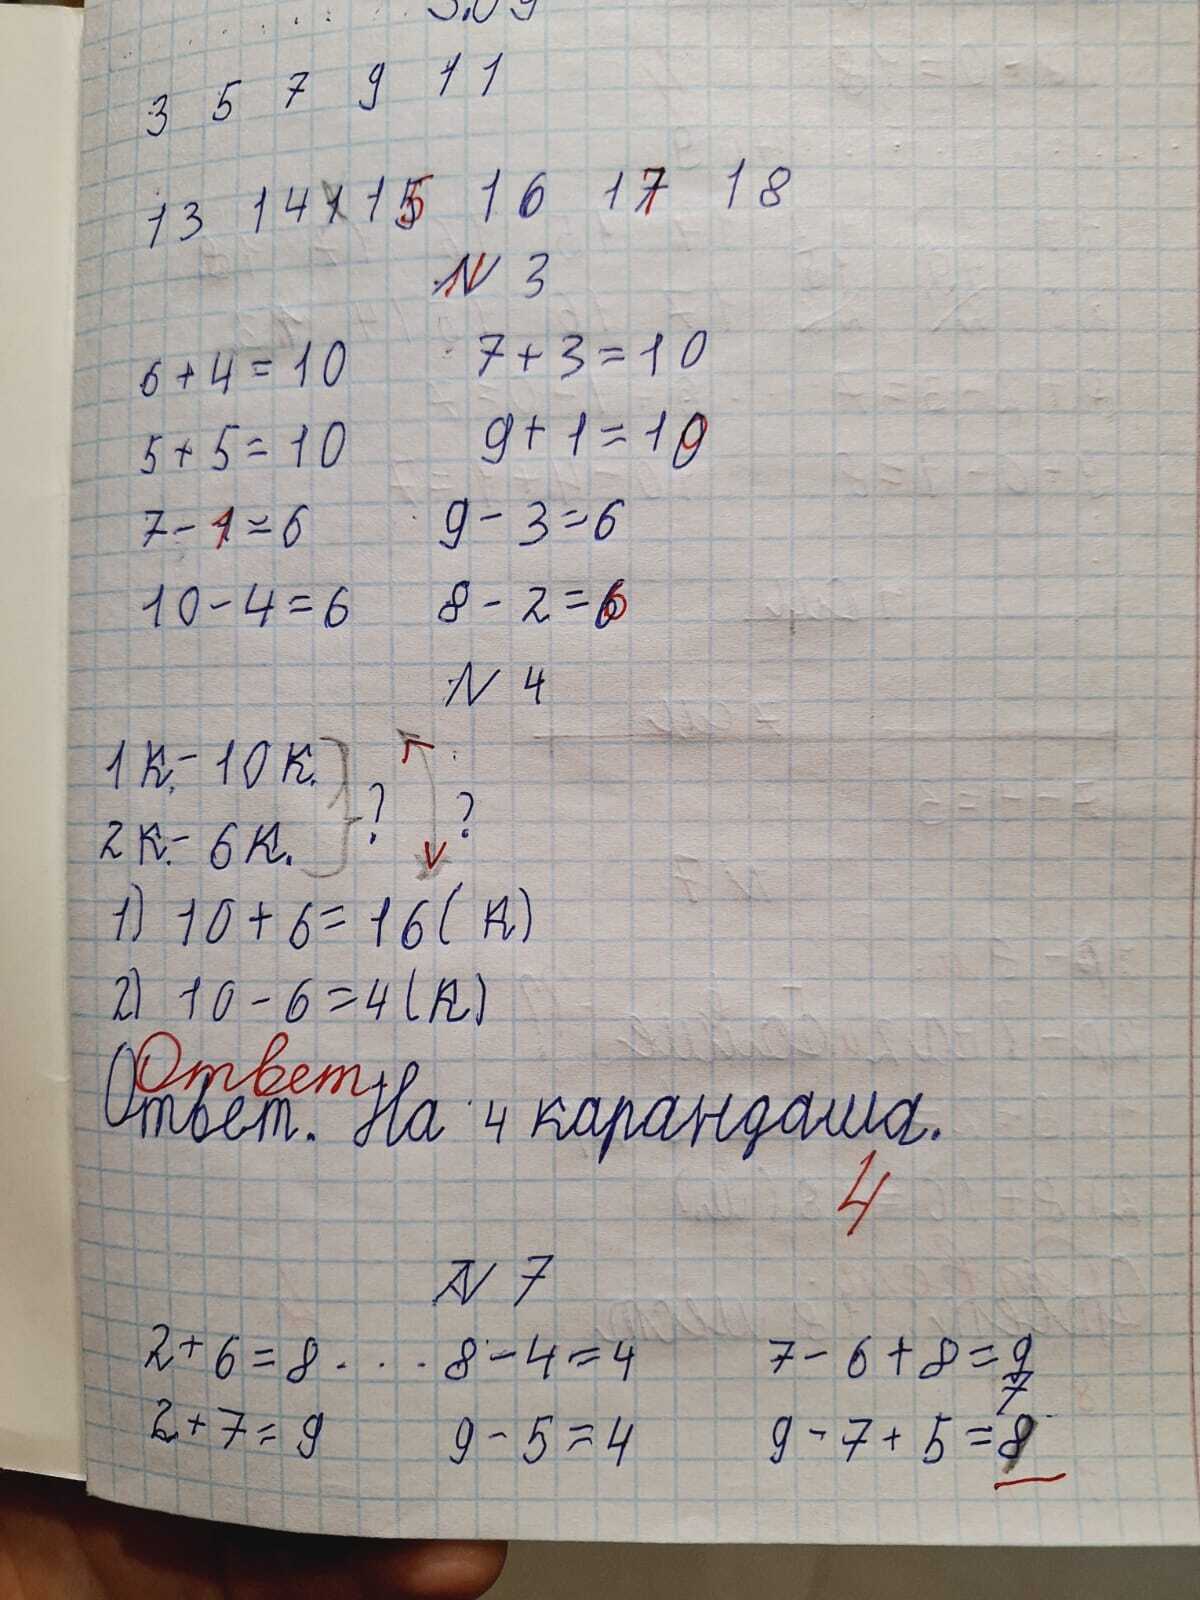 3.09
3 5 7 9 11
13 14 15 16 17 18
N 3
6+4=10 7+3=10
5+5=10 9+1=10
7-1=6 9-3=6
10-4=6 8-2=6
N 4
1к.- 10к.
2к.- 6к. ? ?
1) 10+6=16(к)
2) 10-6=4(к)
Ответ
Ответ. На 4 карандаша.
4
N 7
2+6=8 . . . 8-4=4 7-6+8=9
7
2+7=9 9-5=4 9-7+5=8